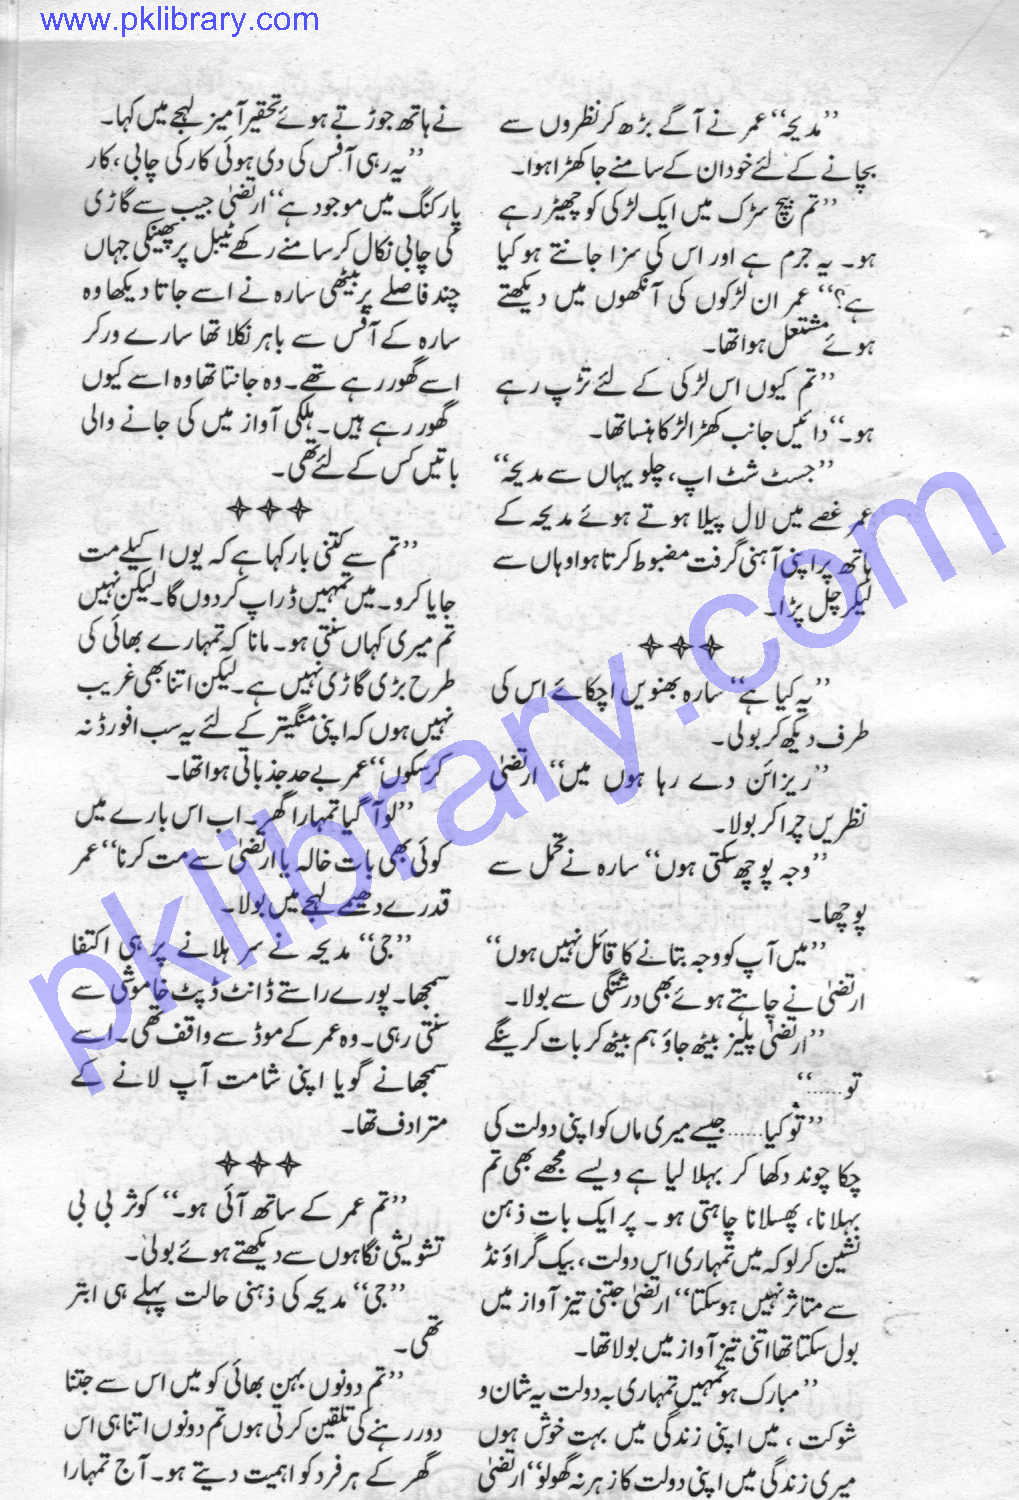 www.pklibrary.com
’’مدیحہ‘‘ عمر نے آگے بڑھ کر نظروں سے
بچانے کے لئے خود ان کے سامنے جا کھڑا ہوا۔
’’تم بیچ سڑک میں ایک لڑکی کو چھیڑ رہے
ہو۔ یہ جرم ہے اور اس کی سزا جانتے ہو کیا
ہے؟‘‘ عمر ان لڑکوں کی آنکھوں میں دیکھتے
ہوئے مشتعل ہوا تھا۔
’’تم کیوں اس لڑکی کے لئے تڑپ رہے
ہو۔‘‘ دائیں جانب کھڑا لڑکا ہنسا تھا۔
’’جسٹ شٹ اپ، چلو یہاں سے مدیحہ‘‘
عمر غصے میں لال پیلا ہوتے ہوئے مدیحہ کے
ہاتھ پر اپنی آہنی گرفت مضبوط کرتا ہوا وہاں سے
لیکر چل پڑا۔
’’یہ کیا ہے‘‘ سارہ بھنویں اچکائے اس کی
طرف دیکھ کر بولی۔
’’ریزائن دے رہا ہوں میں‘‘ ارتضیٰ
نظریں چرا کر بولا۔
’’وجہ پوچھ سکتی ہوں‘‘ سارہ نے تحمل سے
پوچھا۔
’’میں آپ کو وجہ بتانے کا قائل نہیں ہوں‘‘
ارتضیٰ نے چاہتے ہوئے بھی درشتگی سے بولا۔
’’ارتضیٰ پلیز بیٹھ جاؤ ہم بیٹھ کر بات کرینگے
تو......‘‘
’’تو کیا...... جیسے میری ماں کو اپنی دولت کی
چکا چوند دکھا کر بہلا لیا ہے ویسے مجھے بھی تم
بہلانا، پھسلانا چاہتی ہو۔ پر ایک بات ذہن
نشین کر لو کہ میں تمہاری اس دولت، بیک گراؤنڈ
سے متاثر نہیں ہو سکتا‘‘ ارتضیٰ جتنی تیز آواز میں
بول سکتا تھا اتنی تیز آواز میں بولا تھا۔
’’مبارک ہو تمہیں تمہاری یہ دولت یہ شان و
شوکت، میں اپنی زندگی میں بہت خوش ہوں
میری زندگی میں اپنی دولت کا زہر نہ گھولو‘‘ ارتضیٰ
نے ہاتھ جوڑتے ہوئے تحقیر آمیز لہجے میں کہا۔
’’یہ رہی آفس کی دی ہوئی کار کی چابی، کار
پارکنگ میں موجود ہے‘‘ ارتضیٰ جیب سے گاڑی
کی چابی نکال کر سامنے رکھے ٹیبل پر پھینکی جہاں
چند فاصلے پر بیٹھی سارہ نے اسے جاتا دیکھا وہ
سارہ کے آفس سے باہر نکلا تھا سارے ورکر
اسے گھور رہے تھے۔ وہ جانتا تھا وہ اسے کیوں
گھور رہے ہیں۔ ہلکی آواز میں کی جانے والی
باتیں کس کے لئے تھی۔
’’تم سے کتنی بار کہا ہے کہ یوں اکیلے مت
جایا کرو۔ میں تمہیں ڈراپ کر دوں گا۔ لیکن نہیں
تم میری کہاں سنتی ہو۔ مانا کہ تمہارے بھائی کی
طرح بڑی گاڑی نہیں ہے۔ لیکن اتنا بھی غریب
نہیں ہوں کہ اپنی منگیتر کے لئے یہ سب افورڈ نہ
کر سکوں‘‘ عمر بے حد جذباتی ہوا تھا۔
’’لو آ گیا تمہارا گھر۔ اب اس بارے میں
کوئی بھی بات خالہ یا ارتضیٰ سے مت کرنا‘‘ عمر
قدرے دھیمے لہجے میں بولا۔
’’جی‘‘ مدیحہ نے سر ہلانے پر ہی اکتفا
سمجھا۔ پورے راستے ڈانٹ ڈپٹ خاموشی سے
سنتی رہی۔ وہ عمر کے موڈ سے واقف تھی۔ اسے
سمجھانے گویا اپنی شامت آپ لانے کے
مترادف تھا۔
’’تم عمر کے ساتھ آئی ہو۔‘‘ کوثر بی بی
تشویشی نگاہوں سے دیکھتے ہوئے بولی۔
’’جی‘‘ مدیحہ کی ذہنی حالت پہلے ہی ابتر
تھی۔
’’تم دونوں بہن بھائی کو میں اس سے جتنا
دور رہنے کی تلقین کرتی ہوں تم دونوں اتنا ہی اس
گھر کے ہر فرد کو اہمیت دیتے ہو۔ آج تمہارا
pklibrary.com